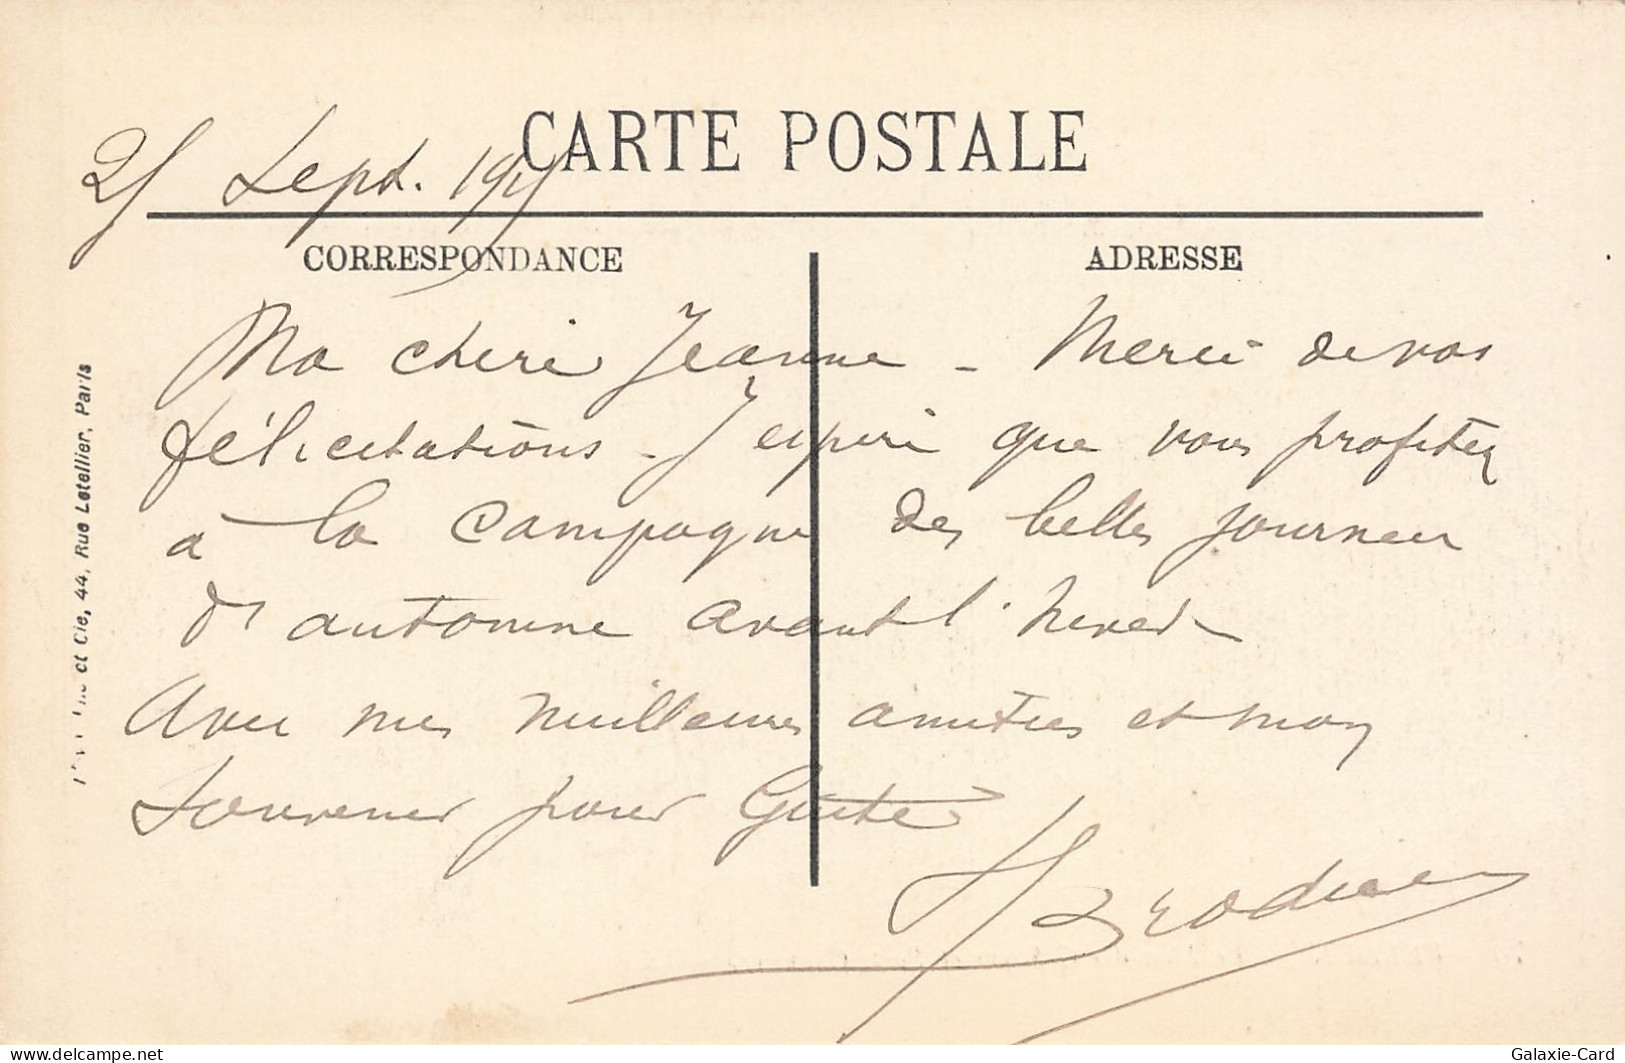 CARTE POSTALE
25 Sept.
CORRESPONDANCE
ADRESSE
Ma chérie Jeanne - Merci de vos
félicitations - J'espère que vous profitez
à la campagne des belles journées
d'automne avant l'hiver -
Avec mes meilleures amitiés et mon
souvenir pour Guite
et Cie, 44, Rue Letellier, Paris
Galaxie-Card